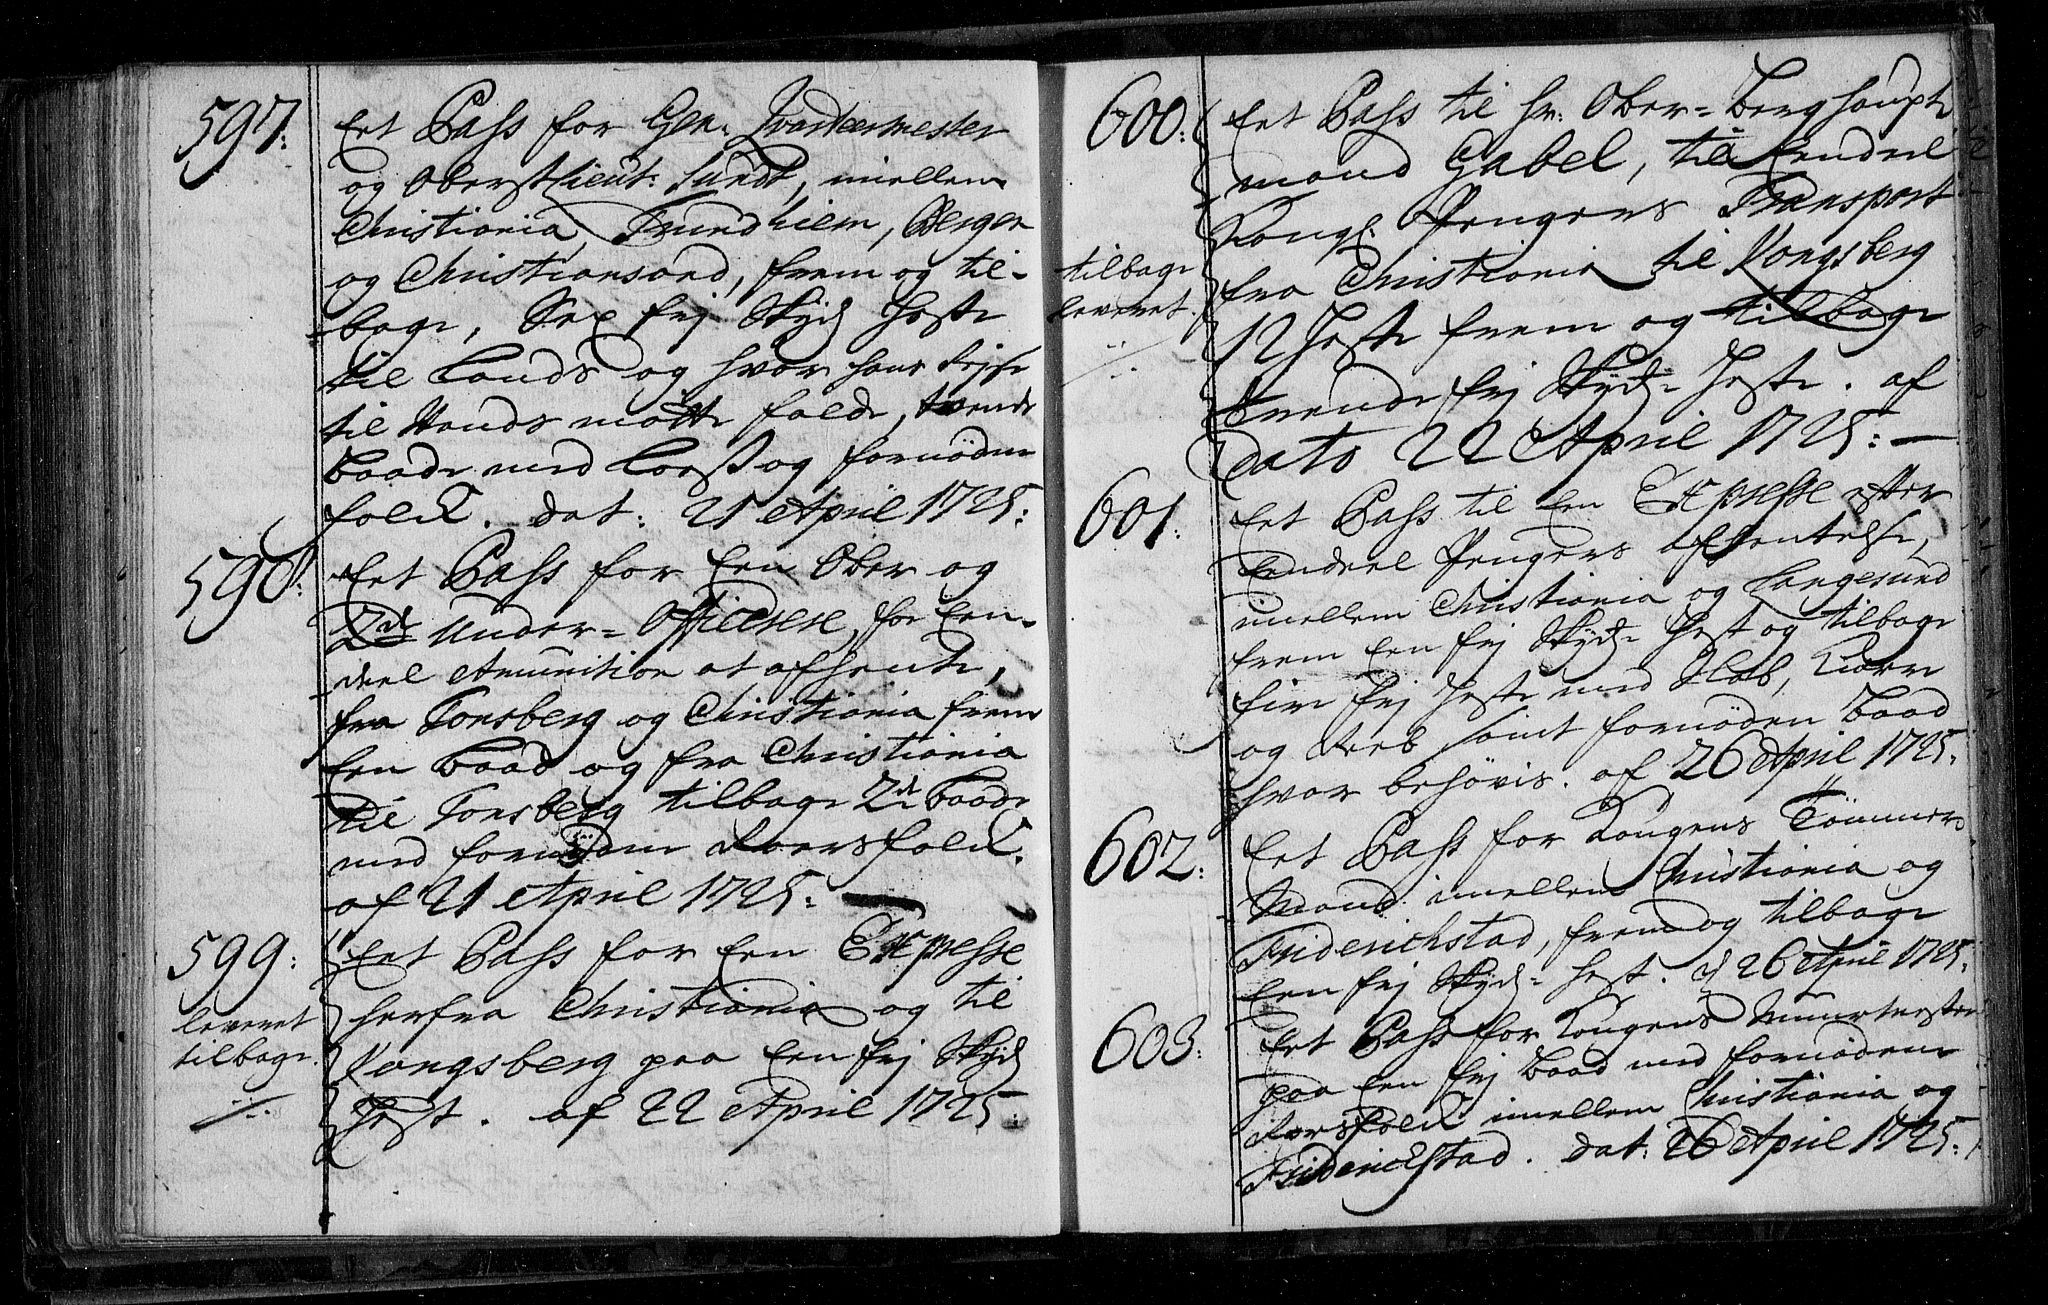 597:
Eet Pass for Gen: Qvarteermester
og Oberstlieut: Lundt, imellem
Christiania, Trundhiem, Bergen
og Christiansand, frem og til-
bage, Sex frj Skyds Heste
til Lands og hvor hans Rejse
til Vands motte falde, tvende
Baade med fornøden
folck. dat: 21 April 1725:
598:
Eet Pass for Een Ober og
2de Under-Officerere, for Een-
deel Amunition at afhente,
fra Tonsberg og Christiania frem
Een Baad og fra Christiania
til Tonsberg tilbage 2de Baade
med fornøden Roersfolck.
af 21 April 1725:
599:
leveret
tilbage
Eet Pass for Een Expresse
herfra Christiania og til
Kongsberg paa Een frj Skyds
Hest. af 22 April 1725:
600:
tilbage
leveret.
Eet Pass til Hr: Ober-Berghaupt-
mand Gabel, til Eendeel
Kongl. Pengers Transport
fra Christiania til Kongsberg
12 Heste frem og tilbage
trende frj Skyds-Heste. af
Dato 22 April 1725:
601:
Eet Pass til Een Expresse efter
Eendeel Pengers afhentelse,
imellem Christiania og Langesund
frem Een frj Skyds-Hest og tilbage
fire frj Heste med Slæb, Kiærre
og Reeb samt fornøden Baad
hvor behøvis. af 26 April 1725.
602:
Eet Pass for Kongens Tömmer-
Mand imellem Christiania og
Friderichstad, frem og tilbage
Een frj Skyds-Hest. d 26 April 1725.
603:
Eet Pass for Kongens Muurmester
paa Een frj Baad med fornøden
Roersfolck imellem Christiania og
Friderichstad. dat: 26 April 1725.